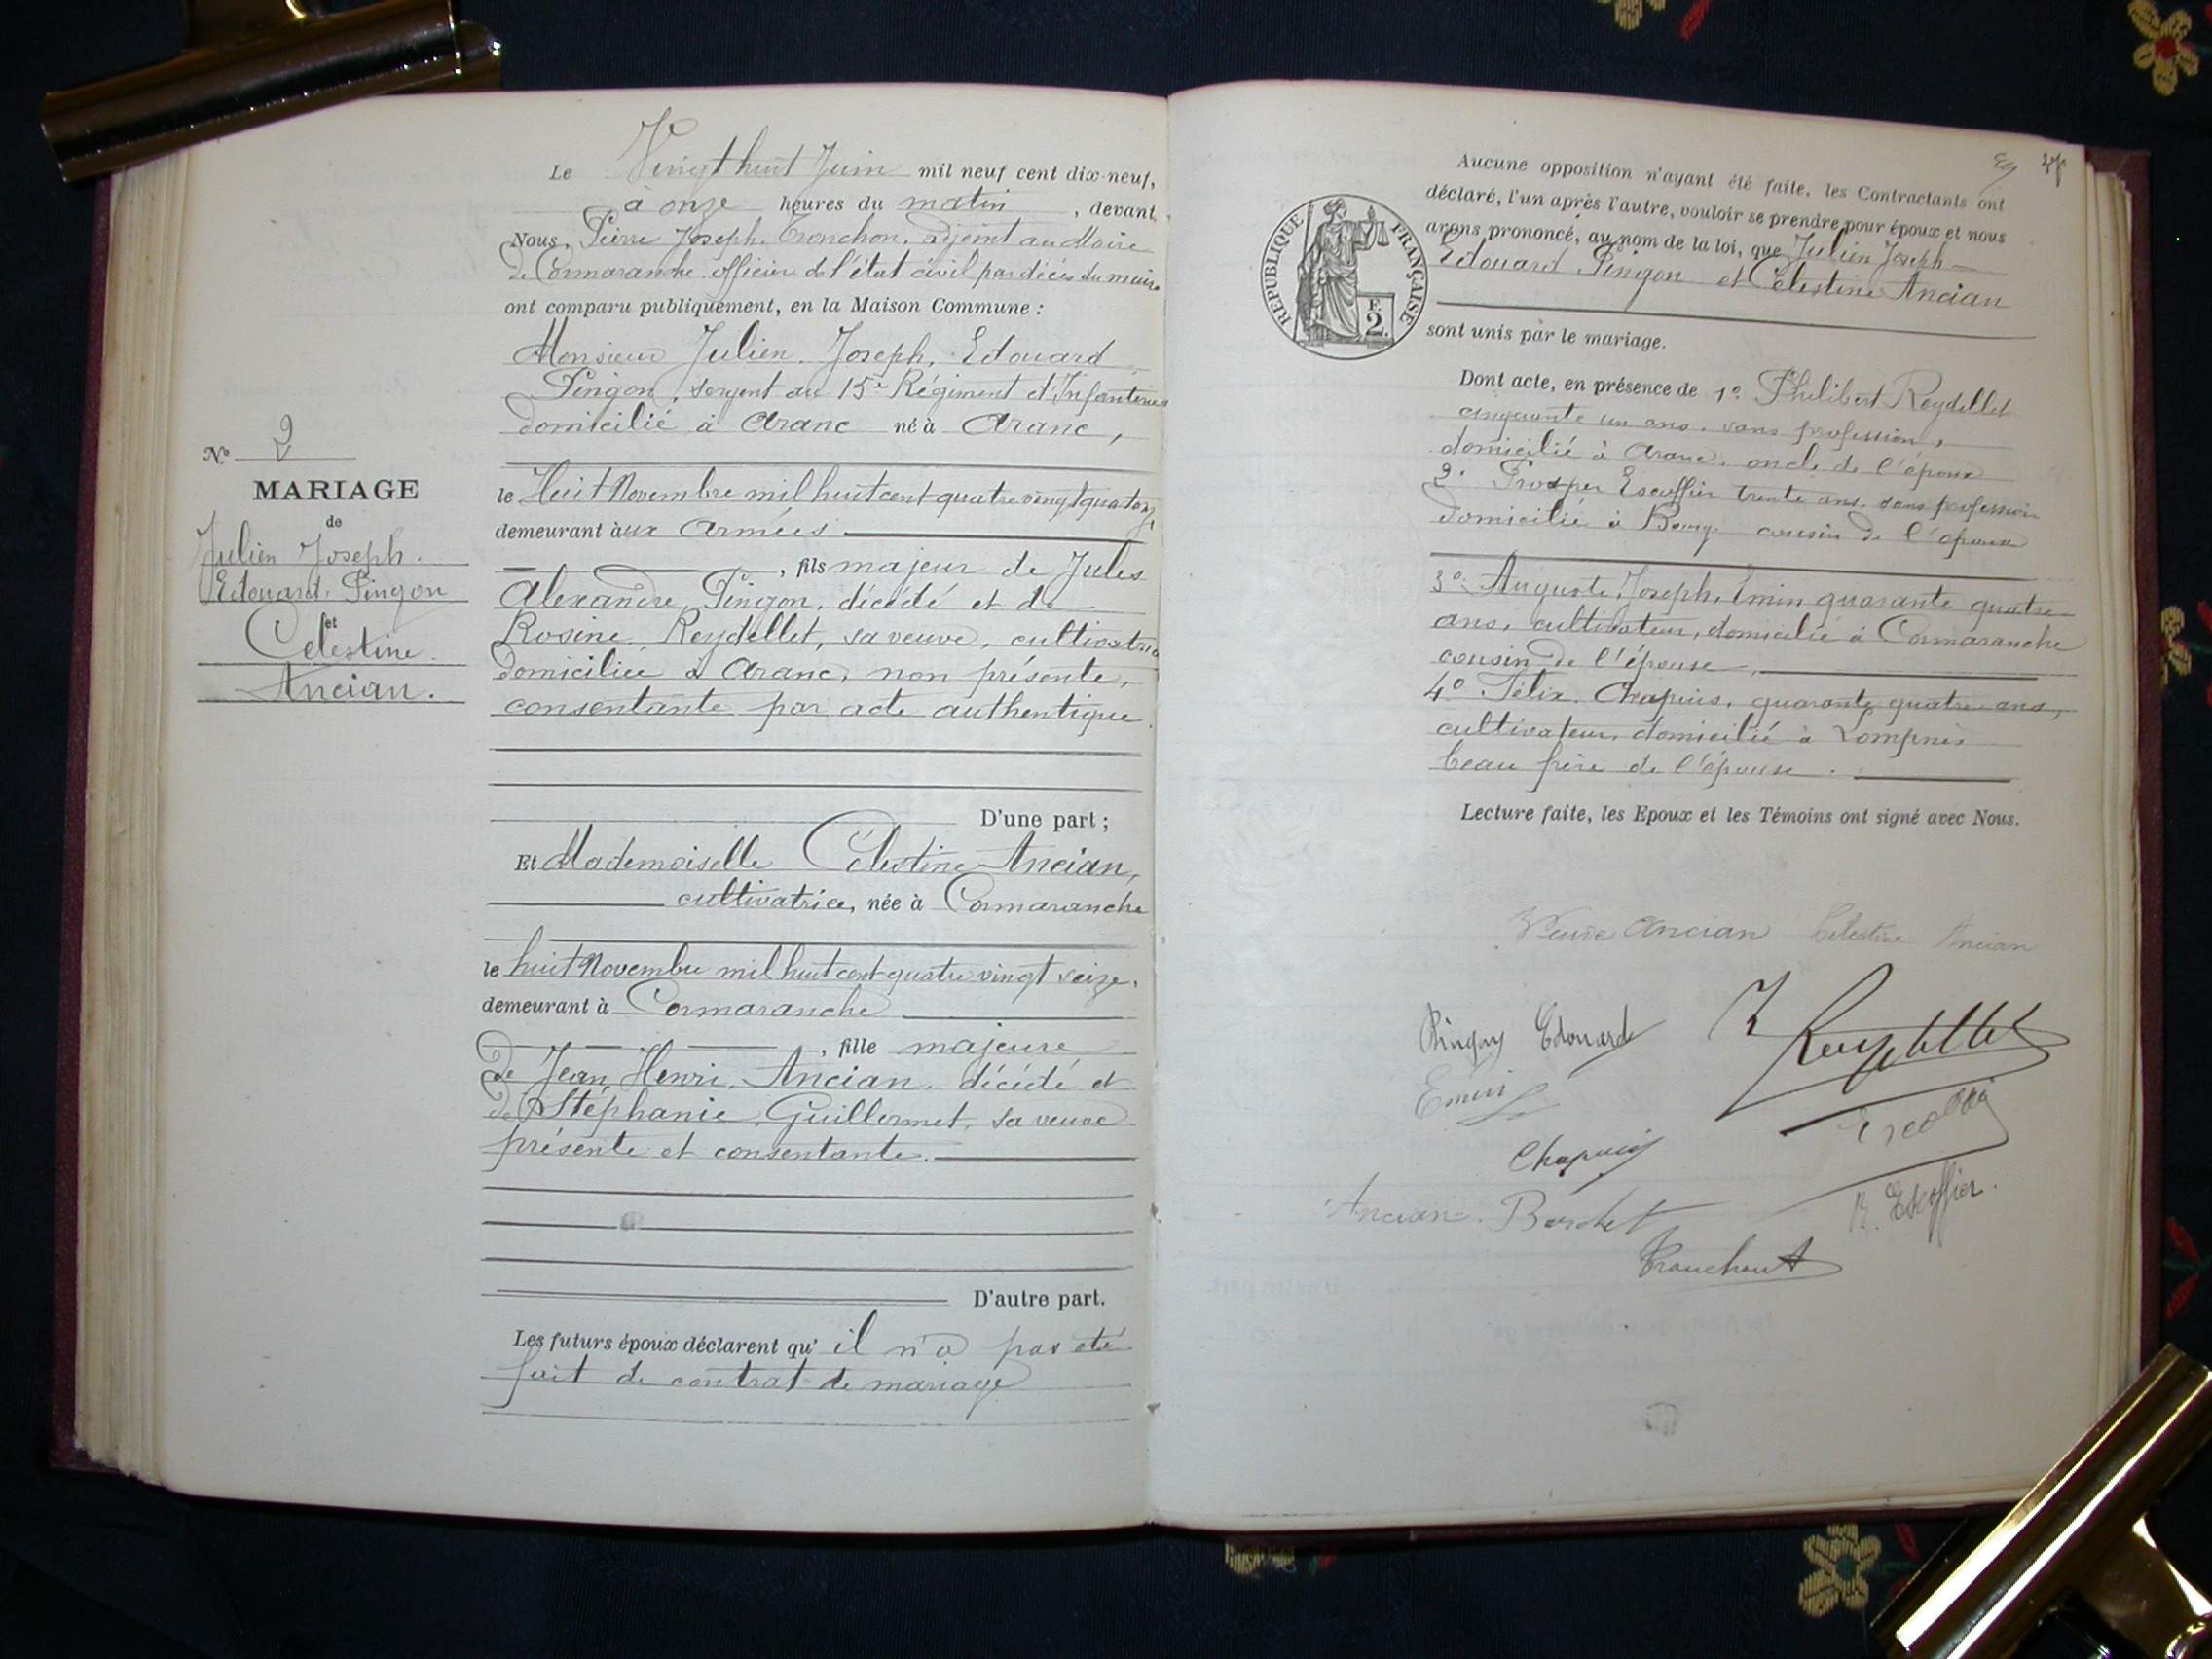 Le Vingt huit Juin mil neuf cent dix-neuf,
à onze heures du matin, devant
Nous, Pierre Joseph. Tronchon. adjoint au Maire
de Cormaranche officier de l'état civil par décès du maire
ont comparu publiquement, en la Maison Commune :
Monsieur Julien. Joseph. Edouard
Pingon, sergent au 15e Régiment d'Infanterie
domicilié à Aranc né à Aranc,
le Huit Novembre mil huit cent quatre vingt quatorze
demeurant aux Armées
, fils majeur de Jules
Alexandre Pingon, décédé et de
Rosine. Reydellet, sa veuve, cultivatrice
domiciliée à Aranc, non présente,
consentante par acte authentique.
D'une part ;
Et Mademoiselle Célestine Ancian,
cultivatrice, née à Cormaranche
le huit Novembre mil huit cent quatre vingt seize,
demeurant à Cormaranche
, fille majeure
de Jean, Henri. Ancian. décédé et
de Stéphanie. Guillermet, sa veuve
présente et consentante.
D'autre part.
Les futurs époux déclarent qu'il n'a pas été
fait de contrat de mariage
No 2
MARIAGE
de
Julien Joseph.
Edouard. Pingon
et
Célestine.
Ancian.
Aucune opposition n'ayant été faite, les Contractants ont
déclaré, l'un après l'autre, vouloir se prendre pour époux et nous
avons prononcé, au nom de la loi, que Julien Joseph
Edouard Pingon et Célestine Ancian
sont unis par le mariage.
RÉPUBLIQUE FRANÇAISE
F.
2.
Dont acte, en présence de 1o Philibert Reydellet
cinquante un ans. sans profession,
domicilié à Aranc. oncle de l'époux
2o Prosper Escoffier trente ans. sans profession
domicilié à Bourg cousin de l'époux
3o Auguste. Joseph. Emin quarante quatre
ans, cultivateur, domicilié à Cormaranche
cousin de l'épouse,
4o Félix. Chapuis. quarante quatre ans,
cultivateur domicilié à Lompnes
beau frère de l'épouse.
Lecture faite, les Epoux et les Témoins ont signé avec Nous.
Veuve Ancian Célestine Ancian
Pingon Edouard Reydellet
Emin
Chapuis
Ancian. Escoffier.
Tronchon